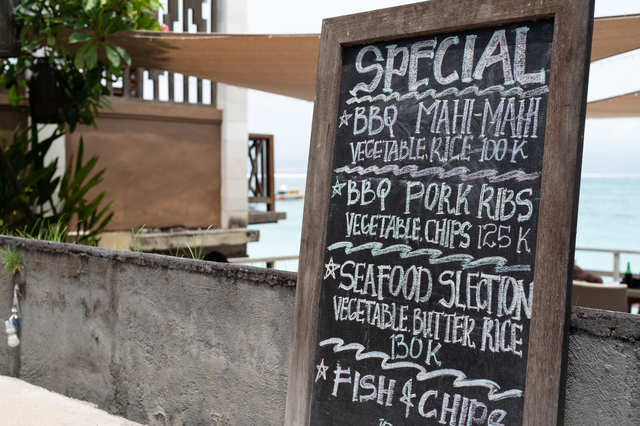 SPECIAL
☆BBQ MAHI-MAHI
VEGETABLE, RICE 100 K
☆BBQ PORK RIBS
VEGETABLE, CHIPS 125 K
☆SEAFOOD SLECTION
VEGETABLE, BUTTER, RICE
130 K
☆FISH & CHIPS